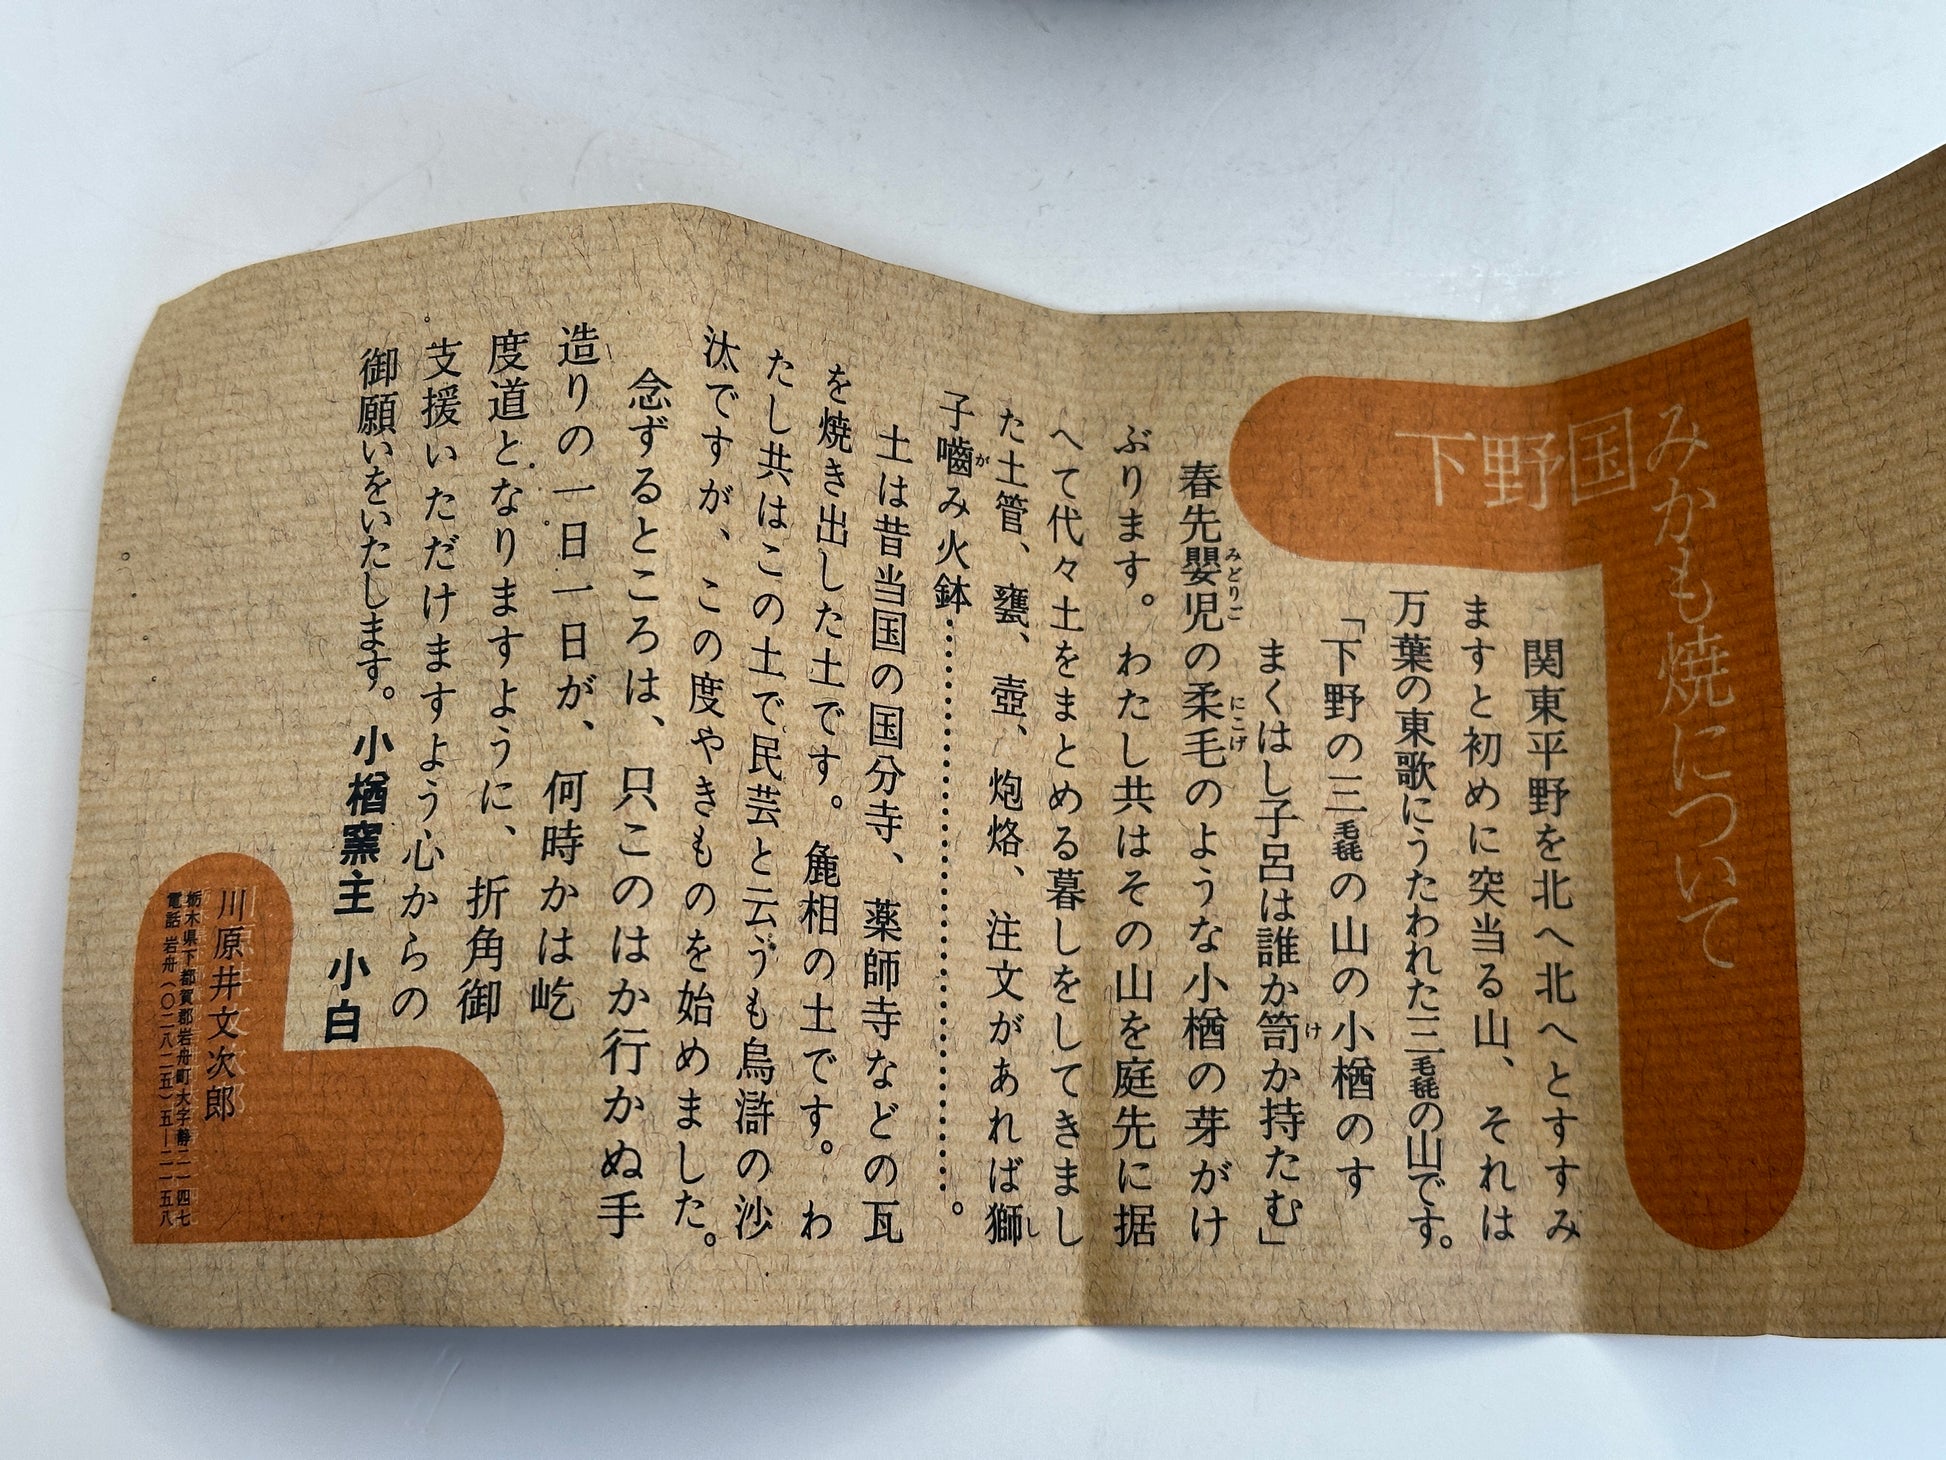 下野国
みかも焼について
関東平野を北へ北へとすすみ
ますと初めに突当る山、それは
万葉の東歌にうたわれた三毳の山です。
「下野の三毳の山の小楢のす
まくはし子呂は誰か笥か持たむ」
け
春先嬰児の柔毛のような小楢の芽がけ
みどりご にこげ
ぶります。わたし共はその山を庭先に据
へて代々土をまとめる暮しをしてきまし
た土管、甕、壺、炮烙、注文があれば獅
し
子嚙み火鉢…………………。
が
土は昔当国の国分寺、薬師寺などの瓦
を焼き出した土です。麁相の土です。わ
たし共はこの土で民芸と云うも烏滸の沙
汰ですが、この度やきものを始めました。
念ずるところは、只このはか行かぬ手
造りの一日一日が、何時かは屹
度道となりますように、折角御
支援いただけますよう心からの
御願いをいたします。小楢窯主 小白
川原井文次郎
栃木県下都賀郡岩舟町大字静二一四七
電話 岩舟(〇二八二五)五―二一五八